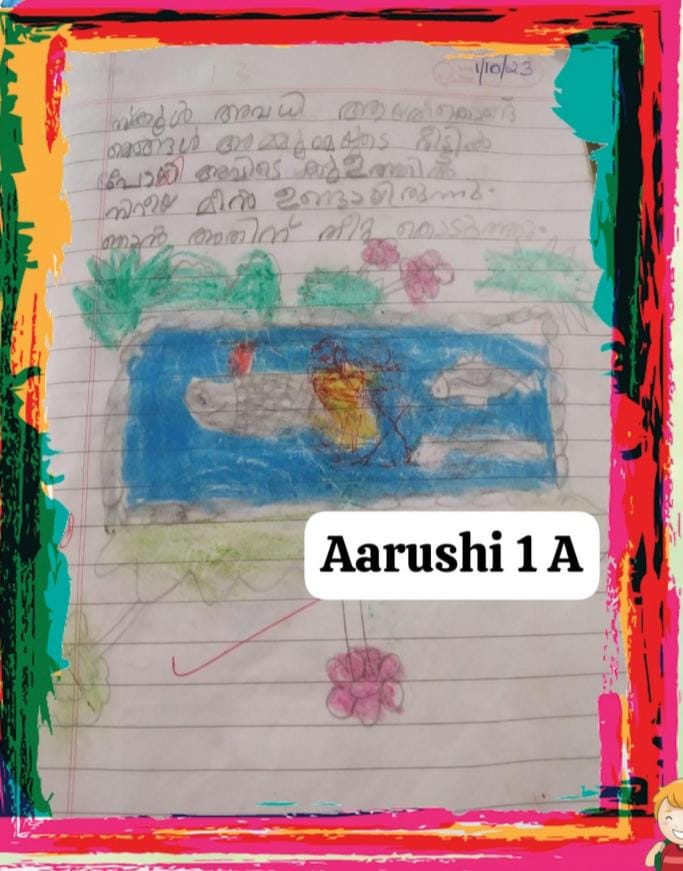 1/10/23
സ്കൂൾ അവധി ആയതുകൊണ്ട്
ഞങ്ങൾ അമ്മുമ്മയുടെ വീട്ടിൽ
പോയി അവിടെ കുളത്തിൽ
നിറയെ മീൻ ഉണ്ടായിരുന്നു.
ഞാൻ അതിന് തീറ്റ കൊടുത്തു.
Aarushi 1 A